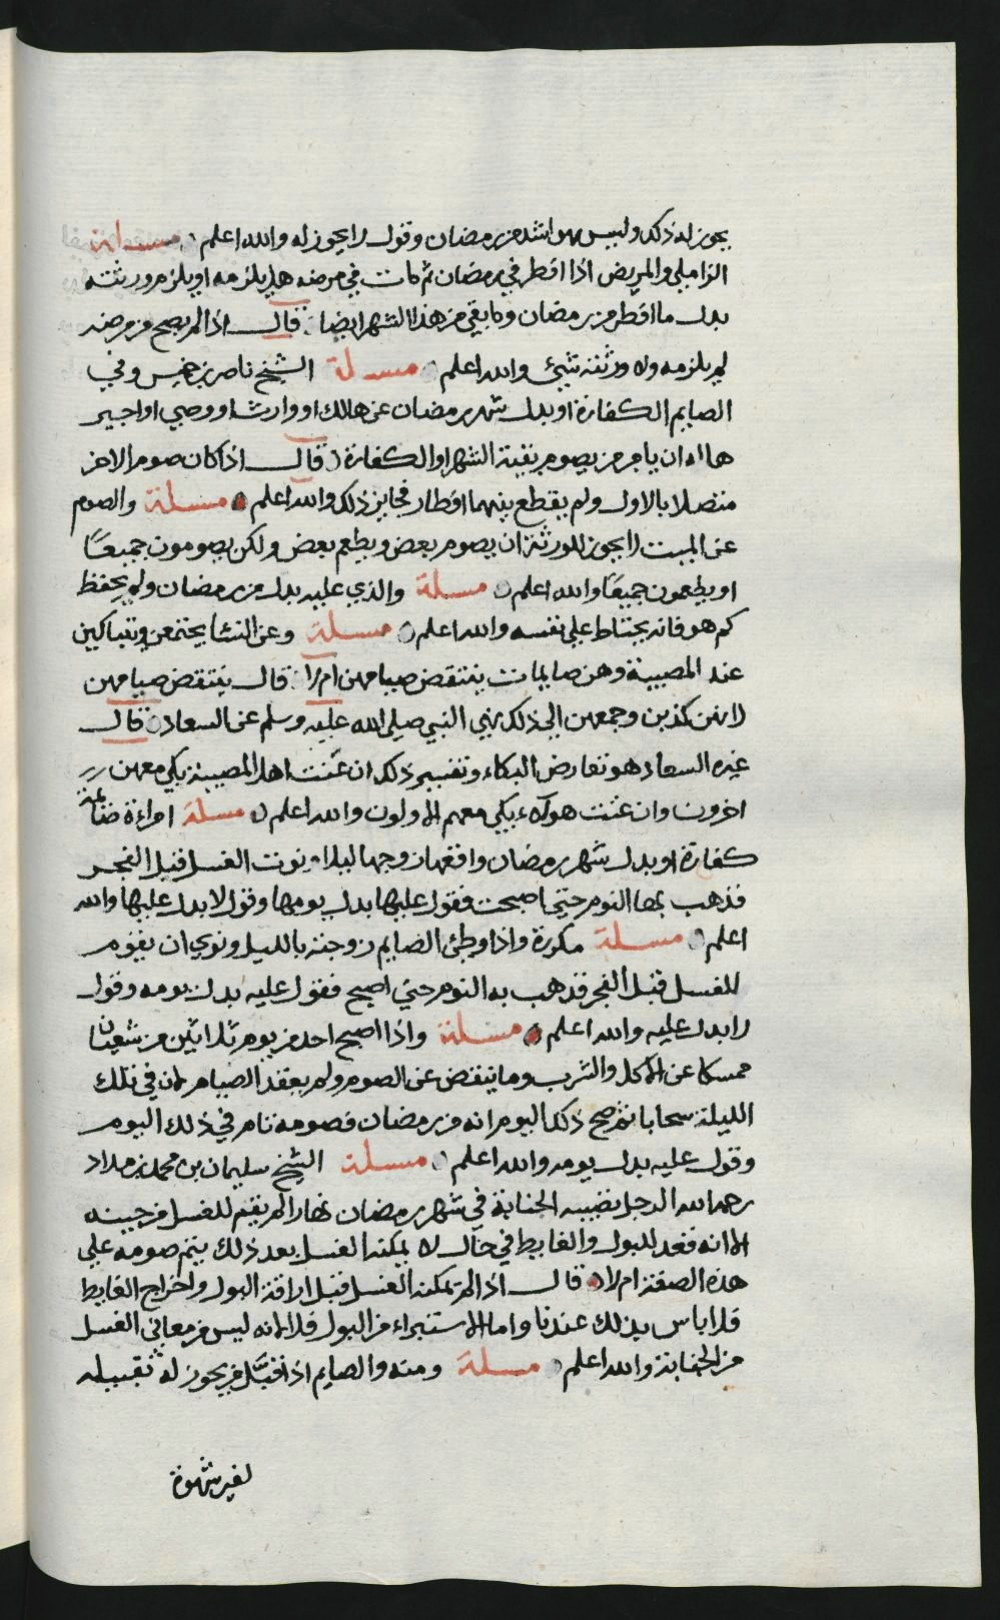 يجوز له ذلك وليس هو اشد من رمضان وقول لا يجوز له والله اعلم مسلة
الزاملي والمريض اذا افطر في رمضان ثم مات في مرضه هل يلزمه او يلزم ورثته
بدل ما افطر من رمضان وما بقي من هذا الشهر ايضا قال اذا لم يصح من مرضه
لم يلزمه ولا ورثته شيئ والله اعلم مسلة الشيخ ناصر بن خميس وفي
الصايم الكفارة او بدل شهر رمضان عن هالك او وارث او وصي او اجير
هل له ان يامر من يصوم بقية الشهر او الكفارة قال اذا كان صوم الاخر
متصلا بالاول ولم يقطع بينهما افطار فجايز ذلك والله اعلم مسلة والصوم
عن الميت لا يجوز للورثة ان يصوم بعض ويطعم بعض ولكن يصومون جميعًا
او يطعمون جميعًا والله اعلم مسلة والذي عليه بدل من رمضان ولم يحفظ
كم هو فانه يحتاط على نفسه والله اعلم مسلة وعن النسا يجتمعن ويتباكين
عند المصيبة وهن صايمات ينتقض صيامهن ام لا قال ينتقض صيامهن
لانهن كذبن وجمعهن الى ذلك نهي النبي صلى الله عليه وسلم عن السعاد قال
غيره السعاد هو تعارض البكاء وتفسير ذلك ان عنت اهل المصيبة بكي معهن
اخرون وان عنت هولاء بكي معهم الاولون والله اعلم مسلة امراءة صايمة
كفارة او بدل شهر رمضان واقعها زوجها ليلا ونوت الغسل قبل الفجر
فذهب بها النوم حتى اصبحت فقول عليها بدل يومها وقول لا بدل عليها والله
اعلم مسلة مكررة واذا وطئ الصايم زوجته بالليل ونوى ان يقوم
للغسل قبل الفجر فذهب به النوم حتى اصبح فقول عليه بدل يومه وقول
لا بدل عليه والله اعلم مسلة واذا اصبح احد من يوم ثلاثين من شعبان
ممسكا عن الاكل والشرب وما ينقض عن الصوم ولم يعقد الصيام لان في تلك
الليلة سحابا ثم صح ذلك اليوم انه من رمضان فصومه تام في ذلك اليوم
وقول عليه بدل يومه والله اعلم مسلة الشيخ سليمان بن محمد بن مداد
رحمه الله الرجل تصيبه الجنابة في شهر رمضان نهارا لم يقم للغسل من حينه
الا انه قعد للبول والغايط في حال لا يمكنه الغسل بعد ذلك يتم صومه على
هذه الصفة ام لا قال اذا لم تمكنه الغسل قبل اراقة البول واخراج الغايط
فلا باس بذلك عندنا واما الاستبراء من البول فلا لانه ليس من معاني الغسل
من الجنابة والله اعلم مسلة ومنه والصايم اذا قبّل من يجوز له تقبيله
لغير شهوة